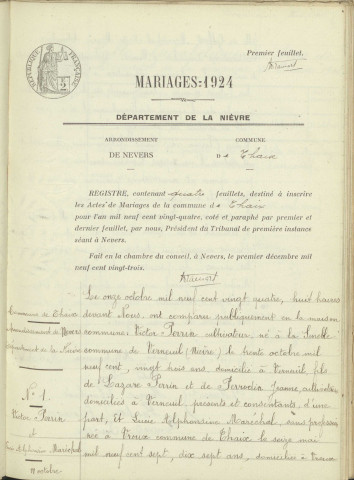 Premier feuillet.
RÉPUBLIQUE FRANÇAISE
MARIAGES : 1924
DÉPARTEMENT DE LA NIÈVRE
ARRONDISSEMENT
DE NEVERS
COMMUNE
DE Thaix
REGISTRE, contenant quatre feuillets, destiné à inscrire
les Actes de Mariages de la commune de Thaix
pour l'an mil neuf cent vingt-quatre, coté et paraphé par premier et
dernier feuillet, par nous, Président du Tribunal de première instance
séant à Nevers.
Fait en la chambre du conseil, à Nevers, le premier décembre mil
neuf cent vingt-trois.
Commune de Thaix
arrondissement de Nevers
département de la Nièvre
N° 1
Victor Perrin
et
Lucie Alphonsine Maréchal
11 octobre
Le onze octobre mil neuf cent vingt quatre, huit heures
devant Nous, ont comparu publiquement en la maison
commune: Victor Perrin cultivateur, né à la
commune de Verneuil (Nièvre) le trente octobre mil
neuf cent, vingt trois ans, domicilié à Verneuil, fils
de Lazare Perrin et de Jeanne cultivateurs
domiciliés à Verneuil, présents et consentants, d'une
part, Et Lucie Alphonsine Maréchal, sans profession
née à Vroux commune de Thaix le seize mai
mil neuf cent sept, dix sept ans, domiciliée à Vroux